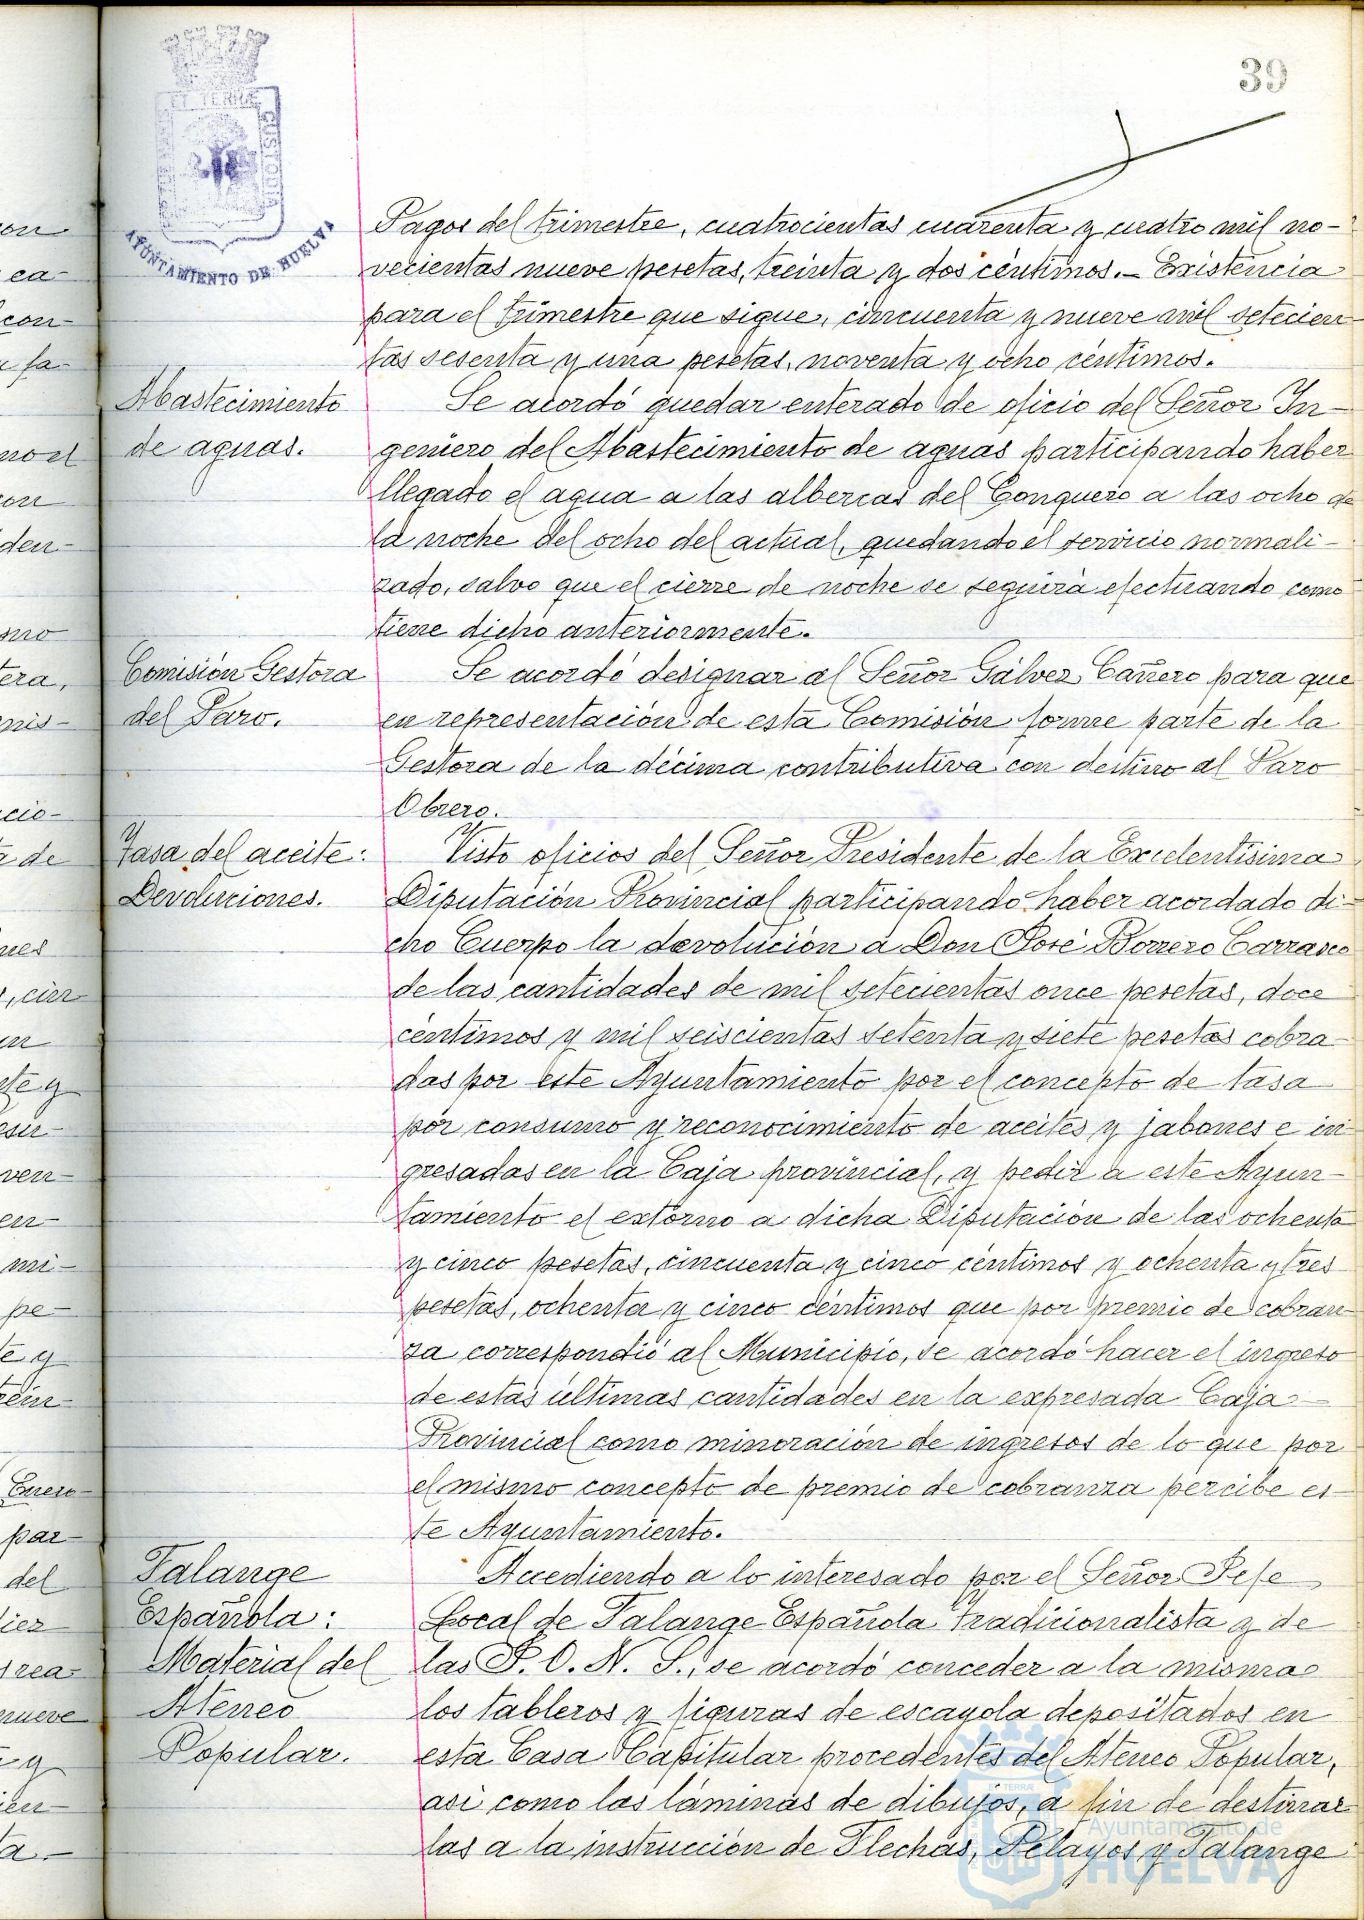 39
ET TERRÆ
CUSTODIA
AYUNTAMIENTO DE HUELVA
Pagos del trimestre, cuatrocientas cuarenta y cuatro mil no-
vecientas nueve pesetas, treinta y dos céntimos.- Existencia
para el trimestre que sigue, cincuenta y nueve mil setecien-
tas sesenta y una pesetas, noventa y ocho céntimos.
Abastecimiento
de aguas.
Se acordó quedar enterado de oficio del Señor In-
geniero del Abastecimiento de aguas participando haber
llegado el agua a las albercas del Conquero a las ocho de
la noche del ocho del actual, quedando el servicio normali-
zado, salvo que el cierre de noche se seguirá efectuando como
tiene dicho anteriormente.
Comisión Gestora
del Paro.
Se acordó designar al Señor Gálvez Cañero para que
en representación de esta Comisión forme parte de la
Gestora de la décima contributiva con destino al Paro
Obrero.
Tasa del aceite:
Devoluciones.
Visto oficios del Señor Presidente de la Excelentísima
Diputación Provincial participando haber acordado di-
cho Cuerpo la devolución a Don José Borrero Carrasco
de las cantidades de mil setecientas once pesetas, doce
céntimos y mil seiscientas setenta y siete pesetas cobra-
das por este Ayuntamiento por el concepto de tasa
por consumo y reconocimiento de aceites y jabones e in-
gresadas en la Caja provincial, y pedir a este Ayun-
tamiento el extorno a dicha Diputación de las ochenta
y cinco pesetas, cincuenta y cinco céntimos y ochenta y tres
pesetas, ochenta y cinco céntimos que por premio de cobran-
za correspondió al Municipio, se acordó hacer el ingreso
de estas últimas cantidades en la expresada Caja
Provincial como minoración de ingresos de lo que por
el mismo concepto de premio de cobranza percibe es-
te Ayuntamiento.
Falange
Española:
Material del
Ateneo
Popular.
Accediendo a lo interesado por el Señor Jefe
Local de Falange Española Tradicionalista y de
las J. O. N. S., se acordó conceder a la misma
los tableros y figuras de escayola depositados en
esta Casa Capitular procedentes del Ateneo Popular,
asi como las láminas de dibujos, a fin de destinar-
las a la instrucción de Flechas, Pelayos y Falange
Ayuntamiento de
HUELVA